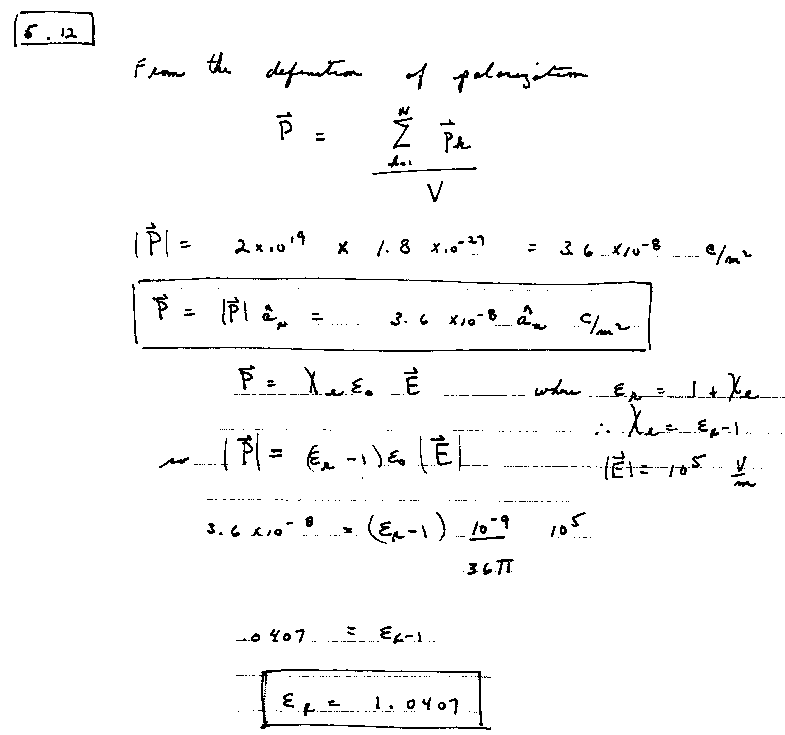 5.12
From the definition of polarization
P⃗ = Σ_{k=1}^{N} p⃗_k / V
|P⃗| = 2×10^19 × 1.8 ×10^-27 = 3.6 ×10^-8 C/m²
P⃗ = |P⃗| â_x = 3.6 ×10^-8 â_x C/m²
P⃗ = χ_e ε_0 E⃗ where ε_r = 1 + χ_e
∴ χ_e = ε_r-1
so |P⃗| = (ε_r -1) ε_0 |E⃗| |E⃗| = 10^5 V/m
3.6 ×10^-8 = (ε_r-1) 10^-9/36π 10^5
.0407 = ε_r-1
ε_r = 1.0407